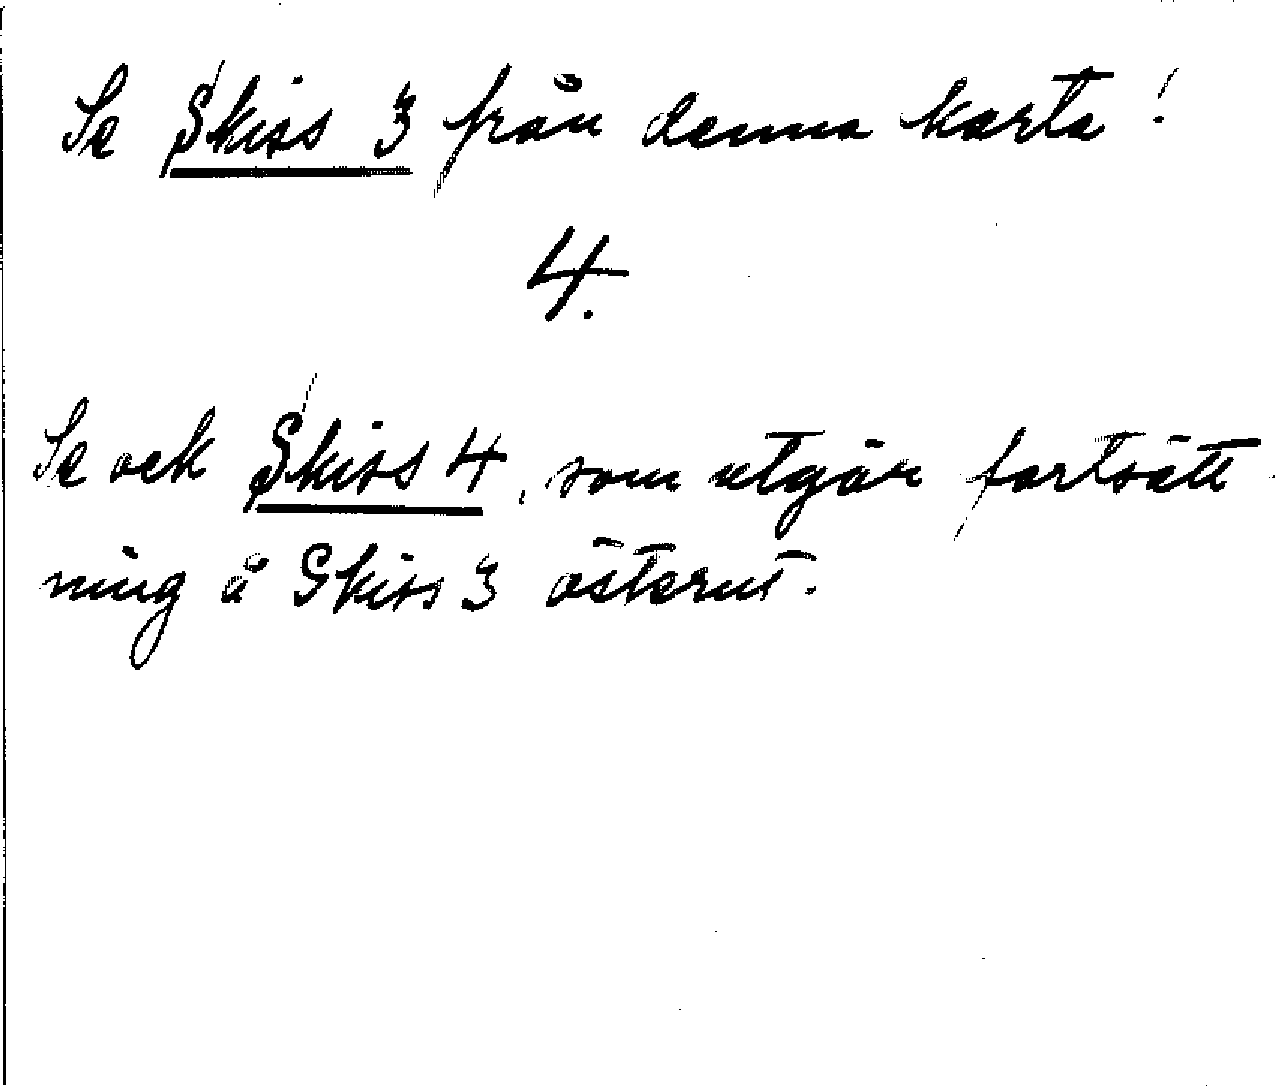 Se Skiss 3 från denna karta!
4.
Se ock Skiss 4, som utgör fortsätt-
ning å Skiss 3 österut.